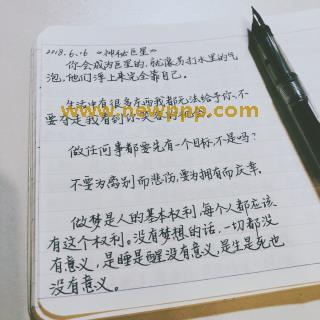 2018.6.16 《神秘巨星》
你会成为巨星的,就像苏打水里的气
泡,他们浮上来完全靠自己。
生活中有很多东西我都无法给予你,不
要夺走我看到你笑
www.newppp.com
做任何事都要先有一个目标,不是吗?
不要为离别而悲伤,要为拥有而庆幸。
做梦是人的基本权利,每个人都应该
有这个权利。没有梦想的话,一切都没
有意义,是睡是醒没有意义,是生是死也
没有意义。